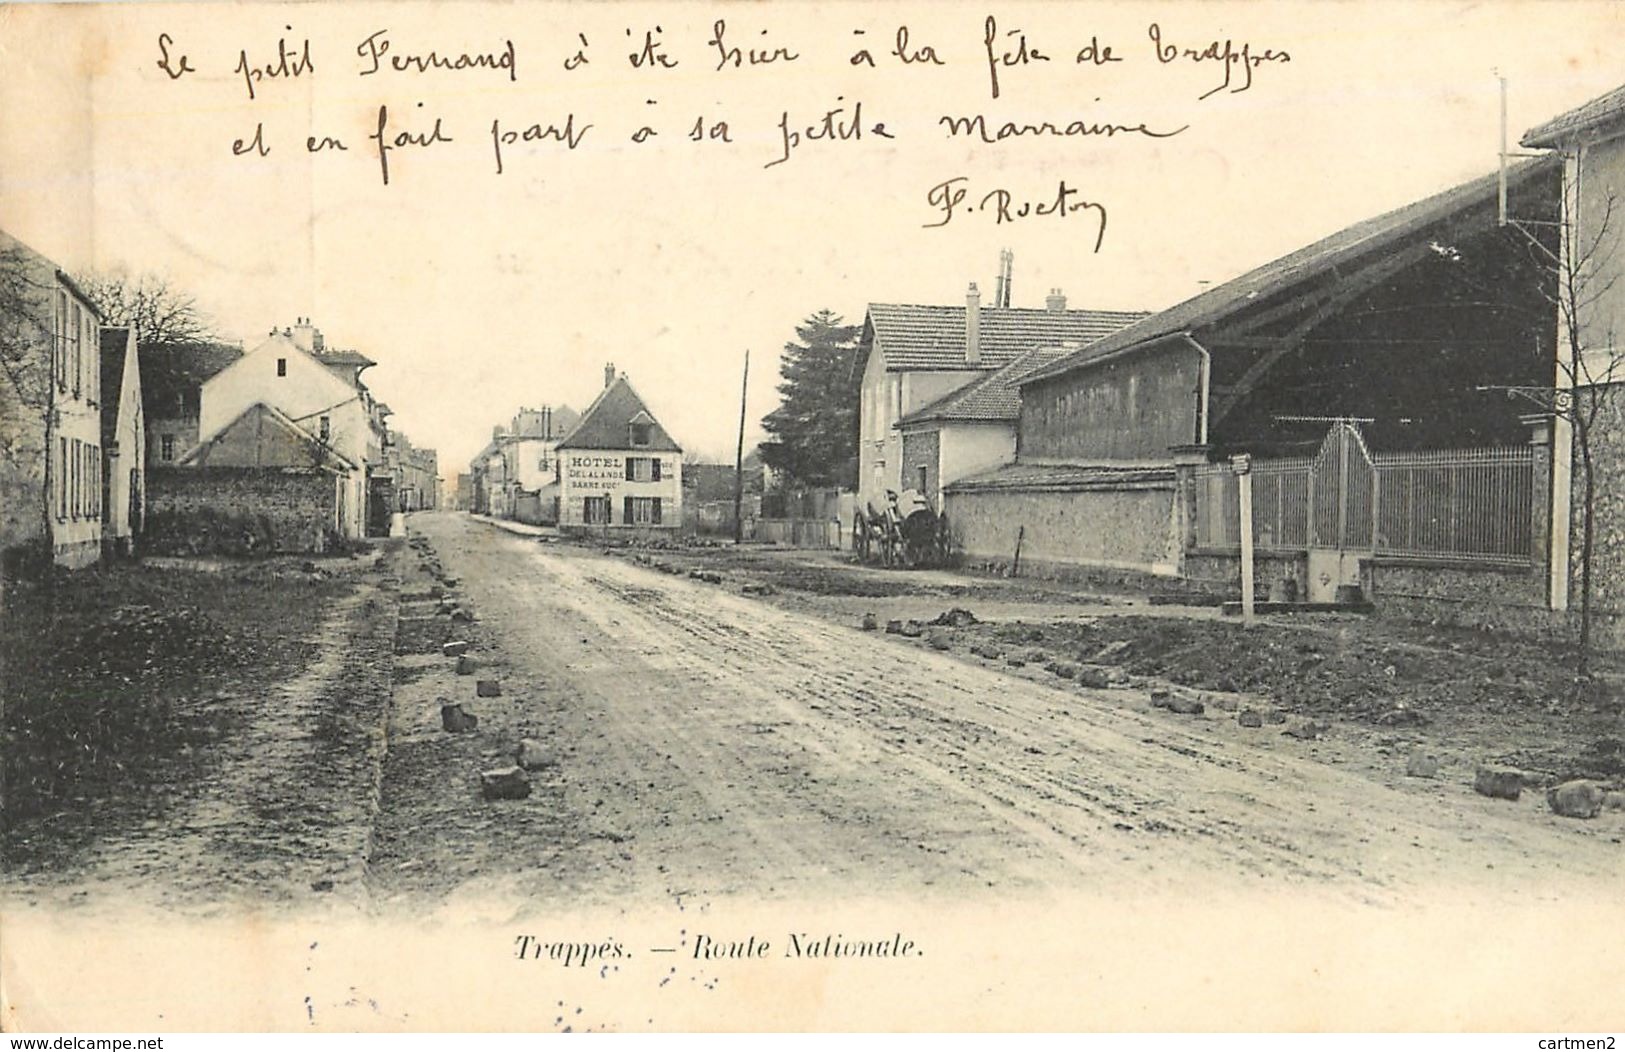 Le petit Fernand à été hier à la fête de Trappes
et en fait part à sa petite Marraine
F. Rueton
HÔTEL
DELALANDE
BARRE SUCʳ
Trappes. — Route Nationale.
www.delcampe.net
cartmen2